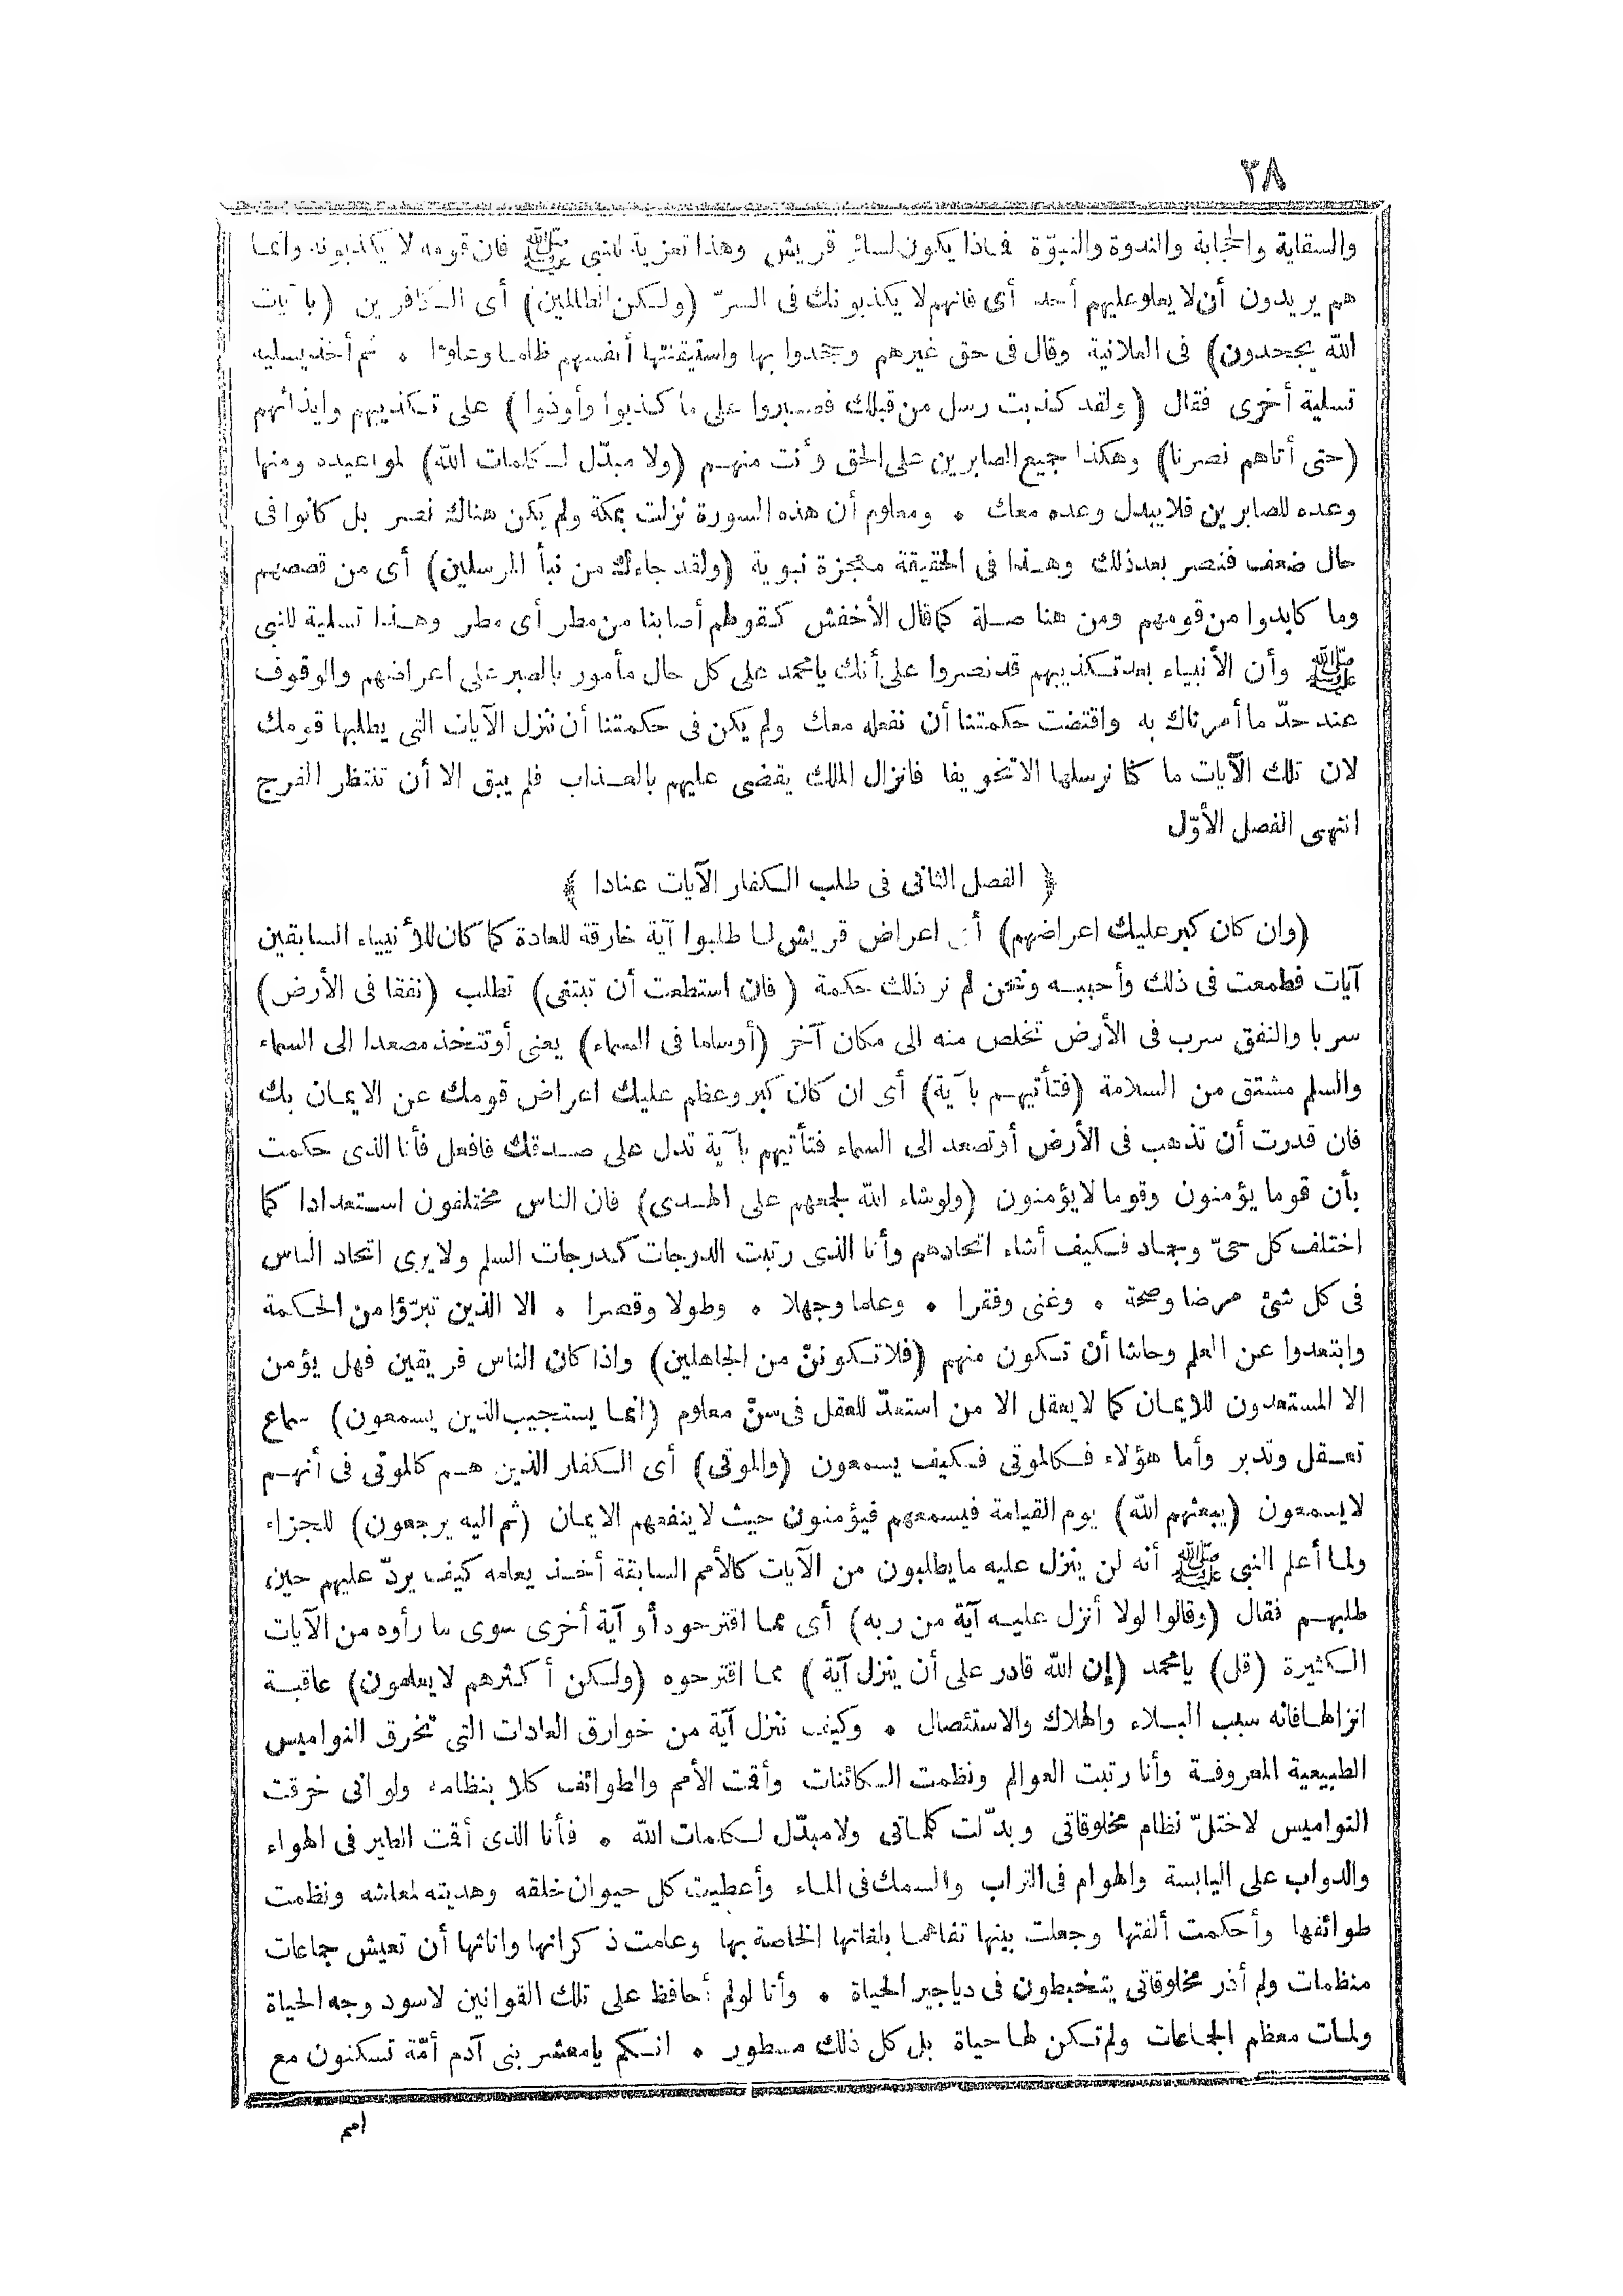 ٢٨
والسقاية والحجابة والندوة والنبوّة فماذا يكون لسائر قريش وهذا تعزية للنبي ﷺ فان قومه لا يكذبونه وانما
هم يريدون أن لا يعلو عليهم أحد أى فانهم لا يكذبونك فى السرّ (ولكن الظالمين) أى الكافرين (با يات
الله يجحدون) فى العلانية وقال فى حق غيرهم وجحدوا بها واستيقنتها أنفسهم ظلما وعلوّا • ثم أخذ يسليه
تسلية أخرى فقال (ولقد كذبت رسل من قبلك فصبروا على ما كذبوا وأوذوا) على تكذيبهم وايذائهم
(حتى أتاهم نصرنا) وهكذا جميع الصابرين على الحق وأنت منهم (ولا مبدّل لكلمات الله) لمواعيده ومنها
وعده للصابرين فلا يبدل وعده معك • ومعلوم أن هذه السورة نزلت بمكة ولم يكن هناك نصر بل كانوا فى
حال ضعف فنصر بعد ذلك وهذا فى الحقيقة معجزة نبوية (ولقد جاءك من نبأ المرسلين) أى من قصصهم
وما كابدوا من قومهم ومن هنا صلة كما قال الأخفش كقولهم أصابنا من مطر أى مطر وهذا تسلية للنبي
ﷺ وأن الأنبياء بعد تكذيبهم قد نصروا على أنك يا محمد على كل حال مأمور بالصبر على اعراضهم والوقوف
عند حدّ ما أمرناك به واقتضت حكمتنا أن نفعله معك ولم يكن فى حكمتنا أن ننزل الآيات التى يطلبها قومك
لان تلك الآيات ما كنا نرسلها الا تخويفا فانزال الملك يقضى عليهم بالعذاب فلم يبق الا أن تنتظر الفرج
انتهى الفصل الأوّل
﴿ الفصل الثانى فى طلب الكفار الآيات عنادا ﴾
(وان كان كبر عليك اعراضهم) أى اعراض قريش لما طلبوا آية خارقة للعادة كما كان للأنبياء السابقين
آيات فطمعت فى ذلك وأحببه ونحن لم نر ذلك حكمة (فان استطعت أن تبتغى) تطلب (نفقا فى الأرض)
سربا والنفق سرب فى الأرض تخلص منه الى مكان آخر (أوسلما فى السماء) يعنى أو تتخذ مصعدا الى السماء
والسلم مشتق من السلامة (فتأتيهم با ية) أى ان كان كبر وعظم عليك اعراض قومك عن الايمان بك
فان قدرت أن تذهب فى الأرض أو تصعد الى السماء فتأتيهم با ية تدل على صدقك فافعل فأنا الذى حكمت
بأن قوما يؤمنون وقوما لا يؤمنون (ولو شاء الله لجمعهم على الهدى) فان الناس مختلفون استعدادا كما
اختلف كل حىّ وجماد فكيف أشاء اتحادهم وأنا الذى رتبت الدرجات كدرجات السلم ولا يرى اتحاد الناس
فى كل شئ مرضا وصحة • وغنى وفقرا • وعلما وجهلا • وطولا وقصرا • الا الذين تبرّؤا من الحكمة
وابتعدوا عن العلم وحاشا أن تكون منهم (فلا تكوننّ من الجاهلين) واذا كان الناس فريقين فهل يؤمن
الا المستعدون للايمان كما لا يعقل الا من استعدّ للعقل فى سنّ معلوم (انما يستجيب الذين يسمعون) سماع
تعقل وتدبر وأما هؤلاء فكالموتى فكيف يسمعون (والموتى) أى الكفار الذين هم كالموتى فى أنهم
لا يسمعون (يبعثهم الله) يوم القيامة فيسمعهم فيؤمنون حيث لا ينفعهم الايمان (ثم اليه يرجعون) للجزاء
ولما أعلم النبى ﷺ أنه لن ينزل عليه ما يطلبون من الآيات كالأمم السابقة أخذ يعلمه كيف يردّ عليهم حين
طلبهم فقال (وقالوا لولا أنزل عليه آية من ربه) أى مما اقترحوه أو آية أخرى سوى ما رأوه من الآيات
الكثيرة (قل) يا محمد (إن الله قادر على أن ينزل آية) مما اقترحوه (ولكن أكثرهم لا يعلمون) عاقبة
انزالها فانه سبب البلاء والهلاك والاستئصال • وكيف ننزل آية من خوارق العادات التى تخرق النواميس
الطبيعية المعروفة وأنا رتبت العوالم ونظمت الكائنات وأقت الأمم والطوائف كلا بنظامه ولو انى خرقت
النواميس لاختلّ نظام مخلوقاتى وبدّلت كلماتى ولا مبدّل لكلمات الله • فأنا الذى أقت الطير فى الهواء
والدواب على اليابسة والهوام فى التراب والسمك فى الماء وأعطيت كل حيوان خلقه وهديته لمعاشه ونظمت
طوائفها وأحكمت ألفتها وجعلت بينها تفاهما بلغاتها الخاصة بها وعلمت ذكرانها واناثها أن تعيش جماعات
منظمات ولم أذر مخلوقاتى يتخبطون فى دياجير الحياة • وأنا لولم أحافظ على تلك القوانين لاسود وجه الحياة
ولمات معظم الجماعات ولم تكن لها حياة بل كل ذلك مسطور • انكم يا معشر بنى آدم أمّة تسكنون مع
امم